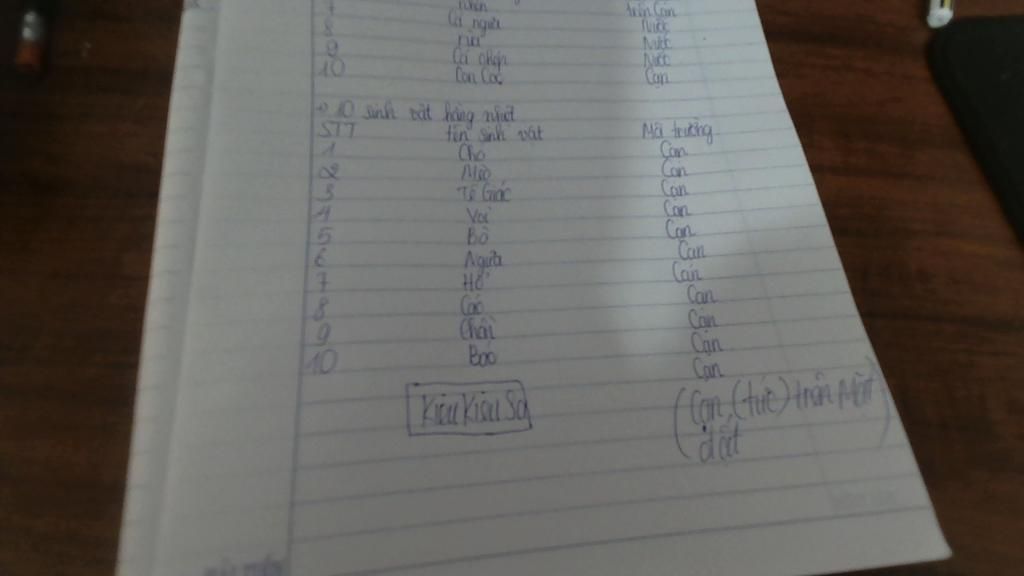 7 Nhện trên Cạn
8 Cá ngựa Nước
9 Nước
10 Cá chép Nước
Con Cóc Cạn
10 sinh vật hằng nhiệt
STT tên sinh vật Môi trường
1 Chó Cạn
2 Mèo Cạn
3 Tê Giác Cạn
4 Voi Cạn
5 Bò Cạn
6 Ngựa Cạn
7 Hổ Cạn
8 Cáo Cạn
9 Chồn Cạn
10 Báo Cạn
Cạn
Kiêu Kiêu Sa
(Cạn (tức) trên Mặt
đất)